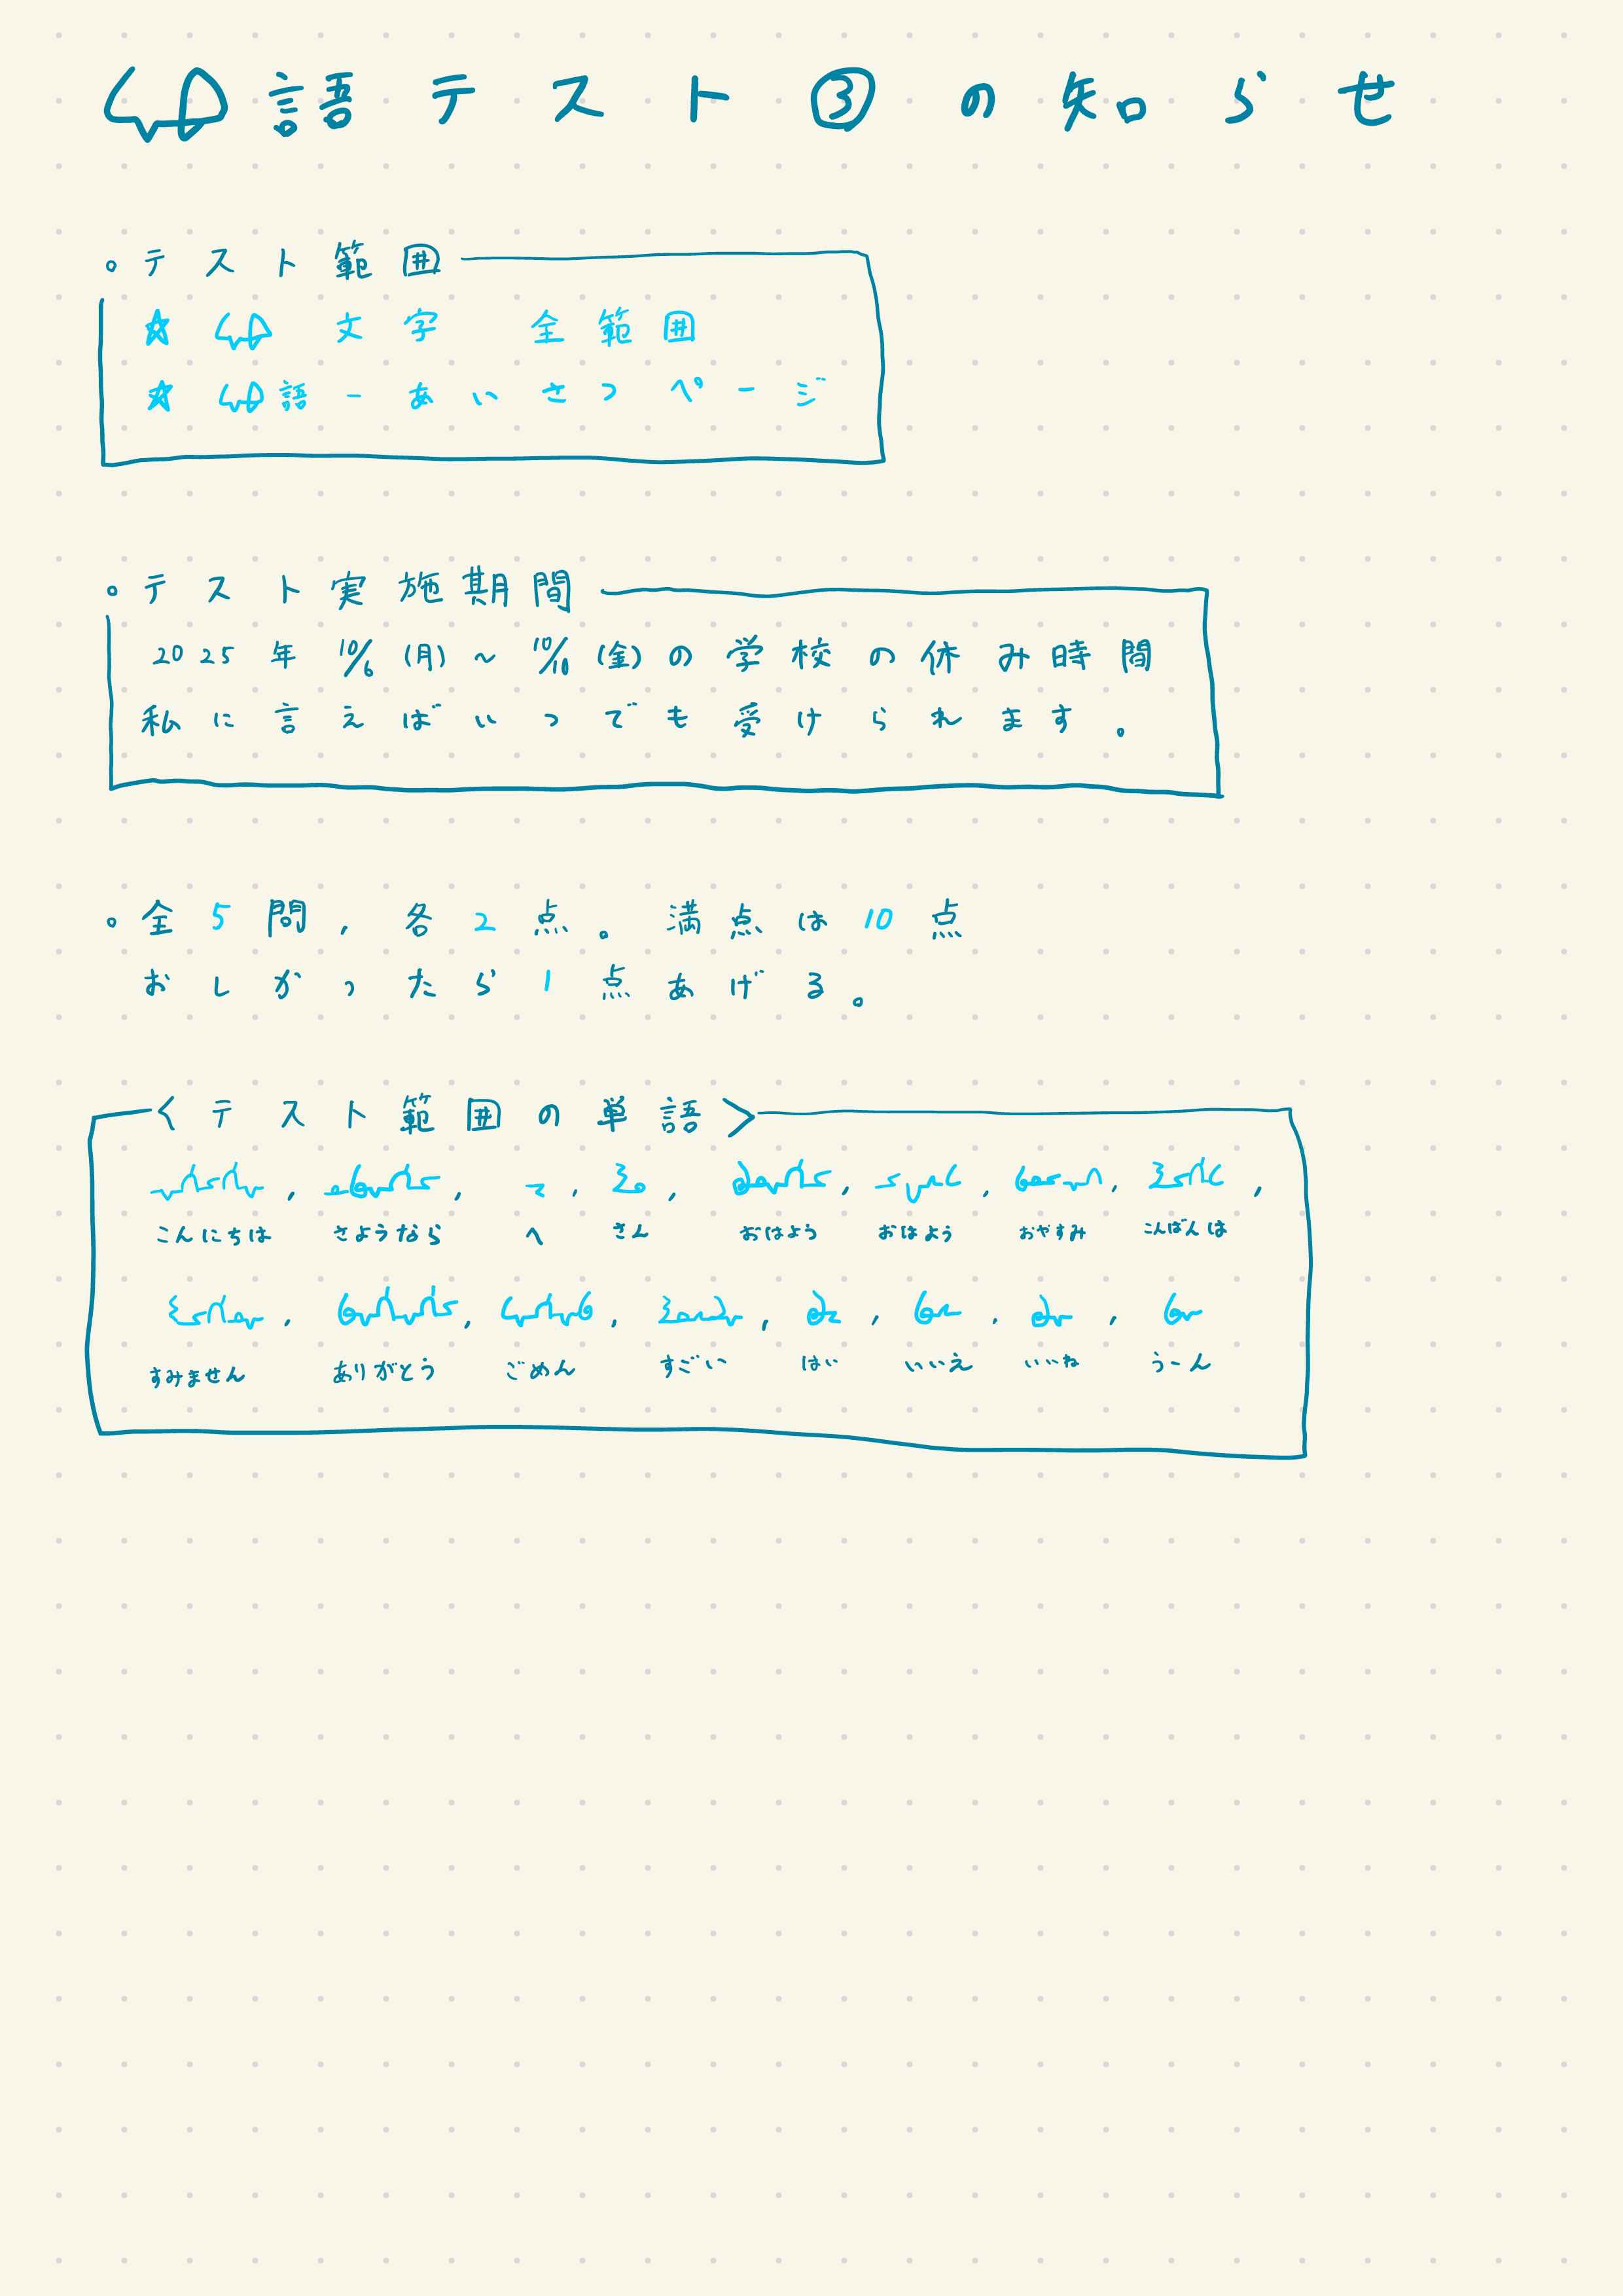 語テスト③の知らせ
テスト範囲
☆ 文字 全範囲
☆ 語-あいさつページ
テスト実施期間
2025年10/6(月)~10/10(金)の学校の休み時間
私に言えばいつでも受けられます。
全5問,各2点。満点は10点
おしかったら1点あげる。
<テスト範囲の単語>
こんにちは さようなら へ さん おはよう おはよう おやすみ こんばんは
すみません ありがとう ごめん すごい はい いいえ いいね うーん